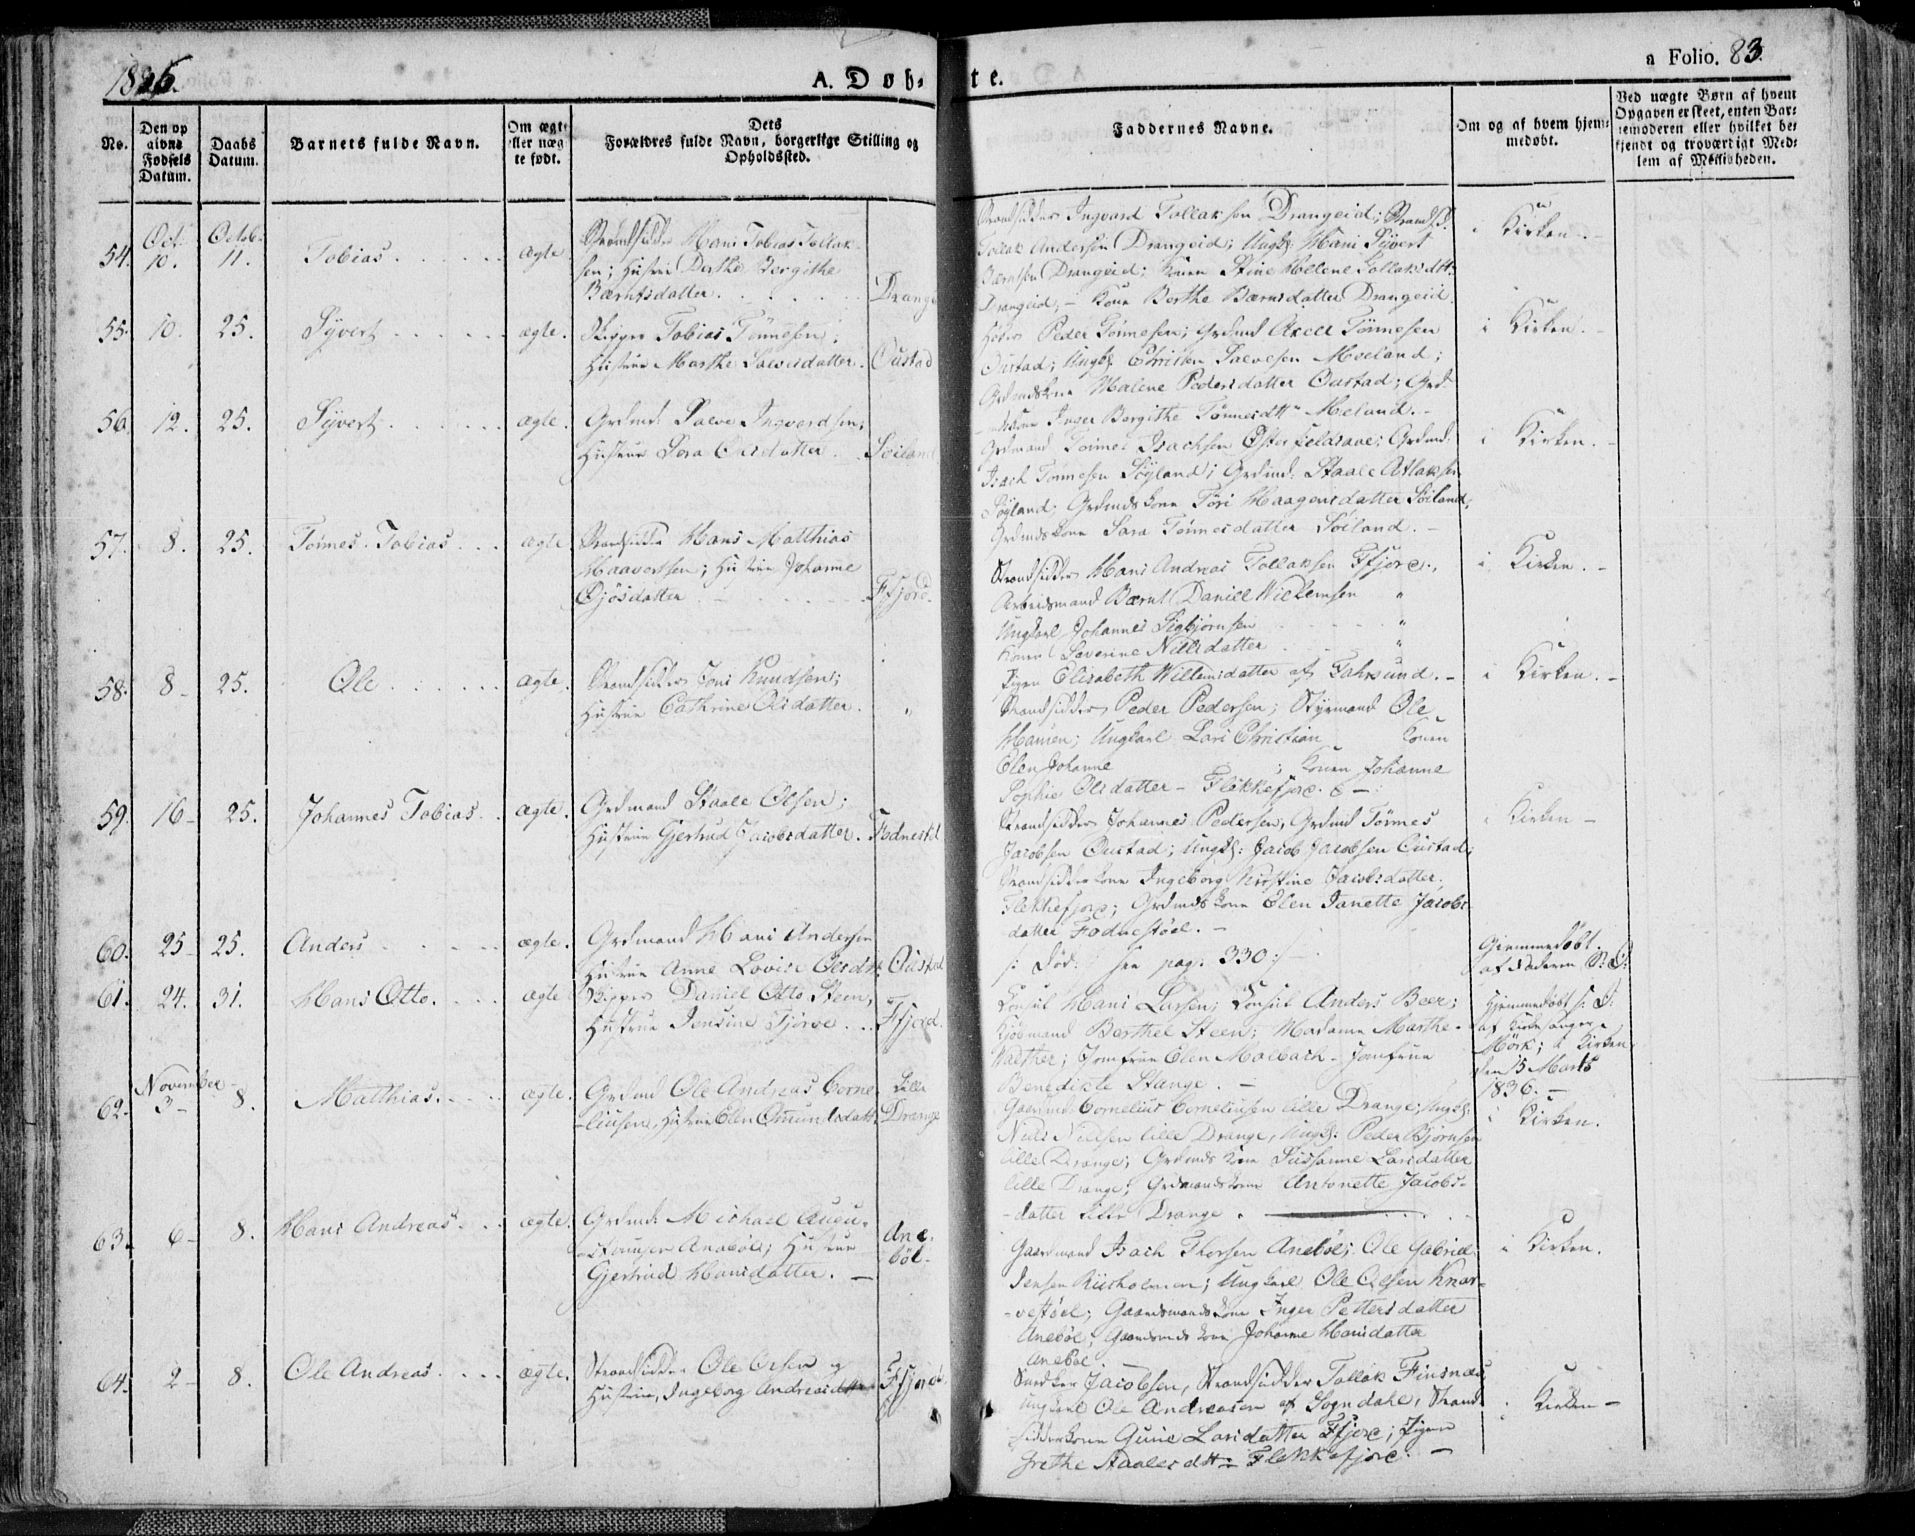 1835.
A. Døb-
te.
a Folio. 83.
No.
Den op
givne
Fødsels
Datum.
Daabs
Datum.
Barnets fulde Navn.
Om ægt-
eller uæg
te født.
Dets
Forældres fulde Navn, borgerlige Stilling og
Opholdssted.
Faddernes Navne.
Om og af hvem hjem-
medøbt.
Ved uægte Børn af hvem
Opgaven er skeet, enten Bar-
nemoderen eller hvilket be-
kjendt og troværdigt Med-
lem af Menigheden.
Oct: Octob:
54. 10. 11. Tobias ægte
Strandsidder Hans Tobias Tollak-
sen; Hustru Berthe Bergithe
Bærntsdatter. Drange
Strandsidder Ingvard Tollaksen Drangeid; Strands:
Tollak Andersen Drangeid; Ungk: Hans Syvert
Bærntsen Drangeid; Konen Stine Helene Tollaksdtt:
Drangeid; - Kone Berthe Bærnsdatter Drangeid.
i Kirken.
55. 10. 25. Syvert ægte.
Skipper Tobias Tønnesen;
Hustrue Marthe Salvesdatter. Oustad
Peder Tønnesen; Grdmd Axel Tønnesen
Oustad; Ungk: Christen Salvesen Moeland;
Grdmdskone Malene Pedersdatter Oustad; Grd-
mdskone Inger Bergithe Tønnesdtr Meland.
i Kirken.
56. 12. 25. Syvert ægte.
Grdmd: Salve Ingvardsen;
Hustrue Sara Olisdatter. Søiland
Grdmand Tønnes Isachsen Øster ; Grdmd:
Isach Tønnesen Søyland; Grdmd: Staale Atlaksen
Søyland; Grdmdskone Tøri Haagensdatter Søiland,
Grdmdskone Sara Tønnesdatter Søiland.
i Kirken.
57. 8. 25. Tønnes Tobias ægte
Strandsidder Hans Matthias
Haaversen; Hustrue Johanne
Gjøsdatter Ffjord.
Strandsidder Hans Andreas Tollaksen Ffjord.,
Arbeidsmand Bærnt Daniel Willemsen "
Ungkarl Johannes Sigbjørnsen "
Konen Severine Nielsdatter "
Pigen Elisabeth Willemsdatter af Fahrsund.
i Kirken.
58. 8 25. Ole ægte.
Strandsidder Jens Knudsen;
Hustrue Cathrine Olisdatter. "
Strandsidder Peder Pedersen; Styrmand Ole
Hansen; Ungkarl Lars Christian Konen
Elen Johanne ; Konen Johanne
Sophie Olisdatter - Flekkefjord.
i Kirken.
59. 16 25. Johannes Tobias ægte.
Grdmand Staale Olsen;
Hustrue Gjertrud Jacobsdatter. Fodnestøl
Strandsidder Johannes Pedersen, Grdmd Tønnes
Jacobsen Oustad; Ungk: Jacob Jacobsen Oustad;
Strandsidderkone Ingeborg Kirstine Jacobsdatter,
Flekkefjord; Grdmdskone Elen Janette Jacobs-
datter Fodnestøel.
i Kirken
60. 25 25. Anders ægte.
Grdmand Hans Andersen
Hustrue Anne Lovise Olisdtt. Oustad
/: Død: see pag: 330:/
Hjemmedøbt.
af Faderen
61. 24. 31. Hans Otto. ægte
Skipper Daniel Otto Steen,
Hustrue Jensine Tjørve. Ffjord.
Konsul Hans Larsen; Konsul Anders Beer;
Kjøbmand Berthel Steen; Madame Marthe
Walther; Jomfrue Elen Malbach - Jomfrue
Benedicte Stange.
Hjemmedøbt
af Kirkesanger
Mörk; i Kirken
den 15 Marts
1836.
November
62. 3 8. Matthias. ægte.
Grdmd Ole Andreas Corne-
liusen, Hustrue Elen Omundsdatt: Lille Drange
Gaardmd: Cornelius Corneliusen lille Drange; Ungk:
Niels Nielsen lille Drange, Ungk: Peder Bjørnsen
lille Drange; Grdmdskone Susanne Larsdatter
lille Drange; Grdmandskone Antonette Jacobs-
datter lille Drange.
i Kirken.
63. 6 8. Hans Andreas. ægte.
Grdmd: Michael Augu-
stinusen Anebøl; Hustrue
Gjertrud Hansdatter. Ane-
bøl.
Gaardmand Isach Thorsen Anebøl; Ole Gabriel
Jensen Riisholmen; Ungkarl Ole Olsen Knar-
vestøel; Gaardmandskone Inger Pettersdatter
Anebøe; Gaardmdskone Johanne Hansdatter
Anebøe
i Kirken.
64. 2 8. Ole Andreas. ægte.
Strandsidder Ole Olsen og
Hustrue, Ingeborg Andreasdatter Ffjord
Snedker Jacobsen, Strandsidder Tollak Finsnæs
Ungkarl Ole Andreasen af Sogndahl, Strand-
sidderkone Gunie Larsdatter Ffjord; Pigen
Grethe Staalesdtt: Flekkefjord.
i Kirken